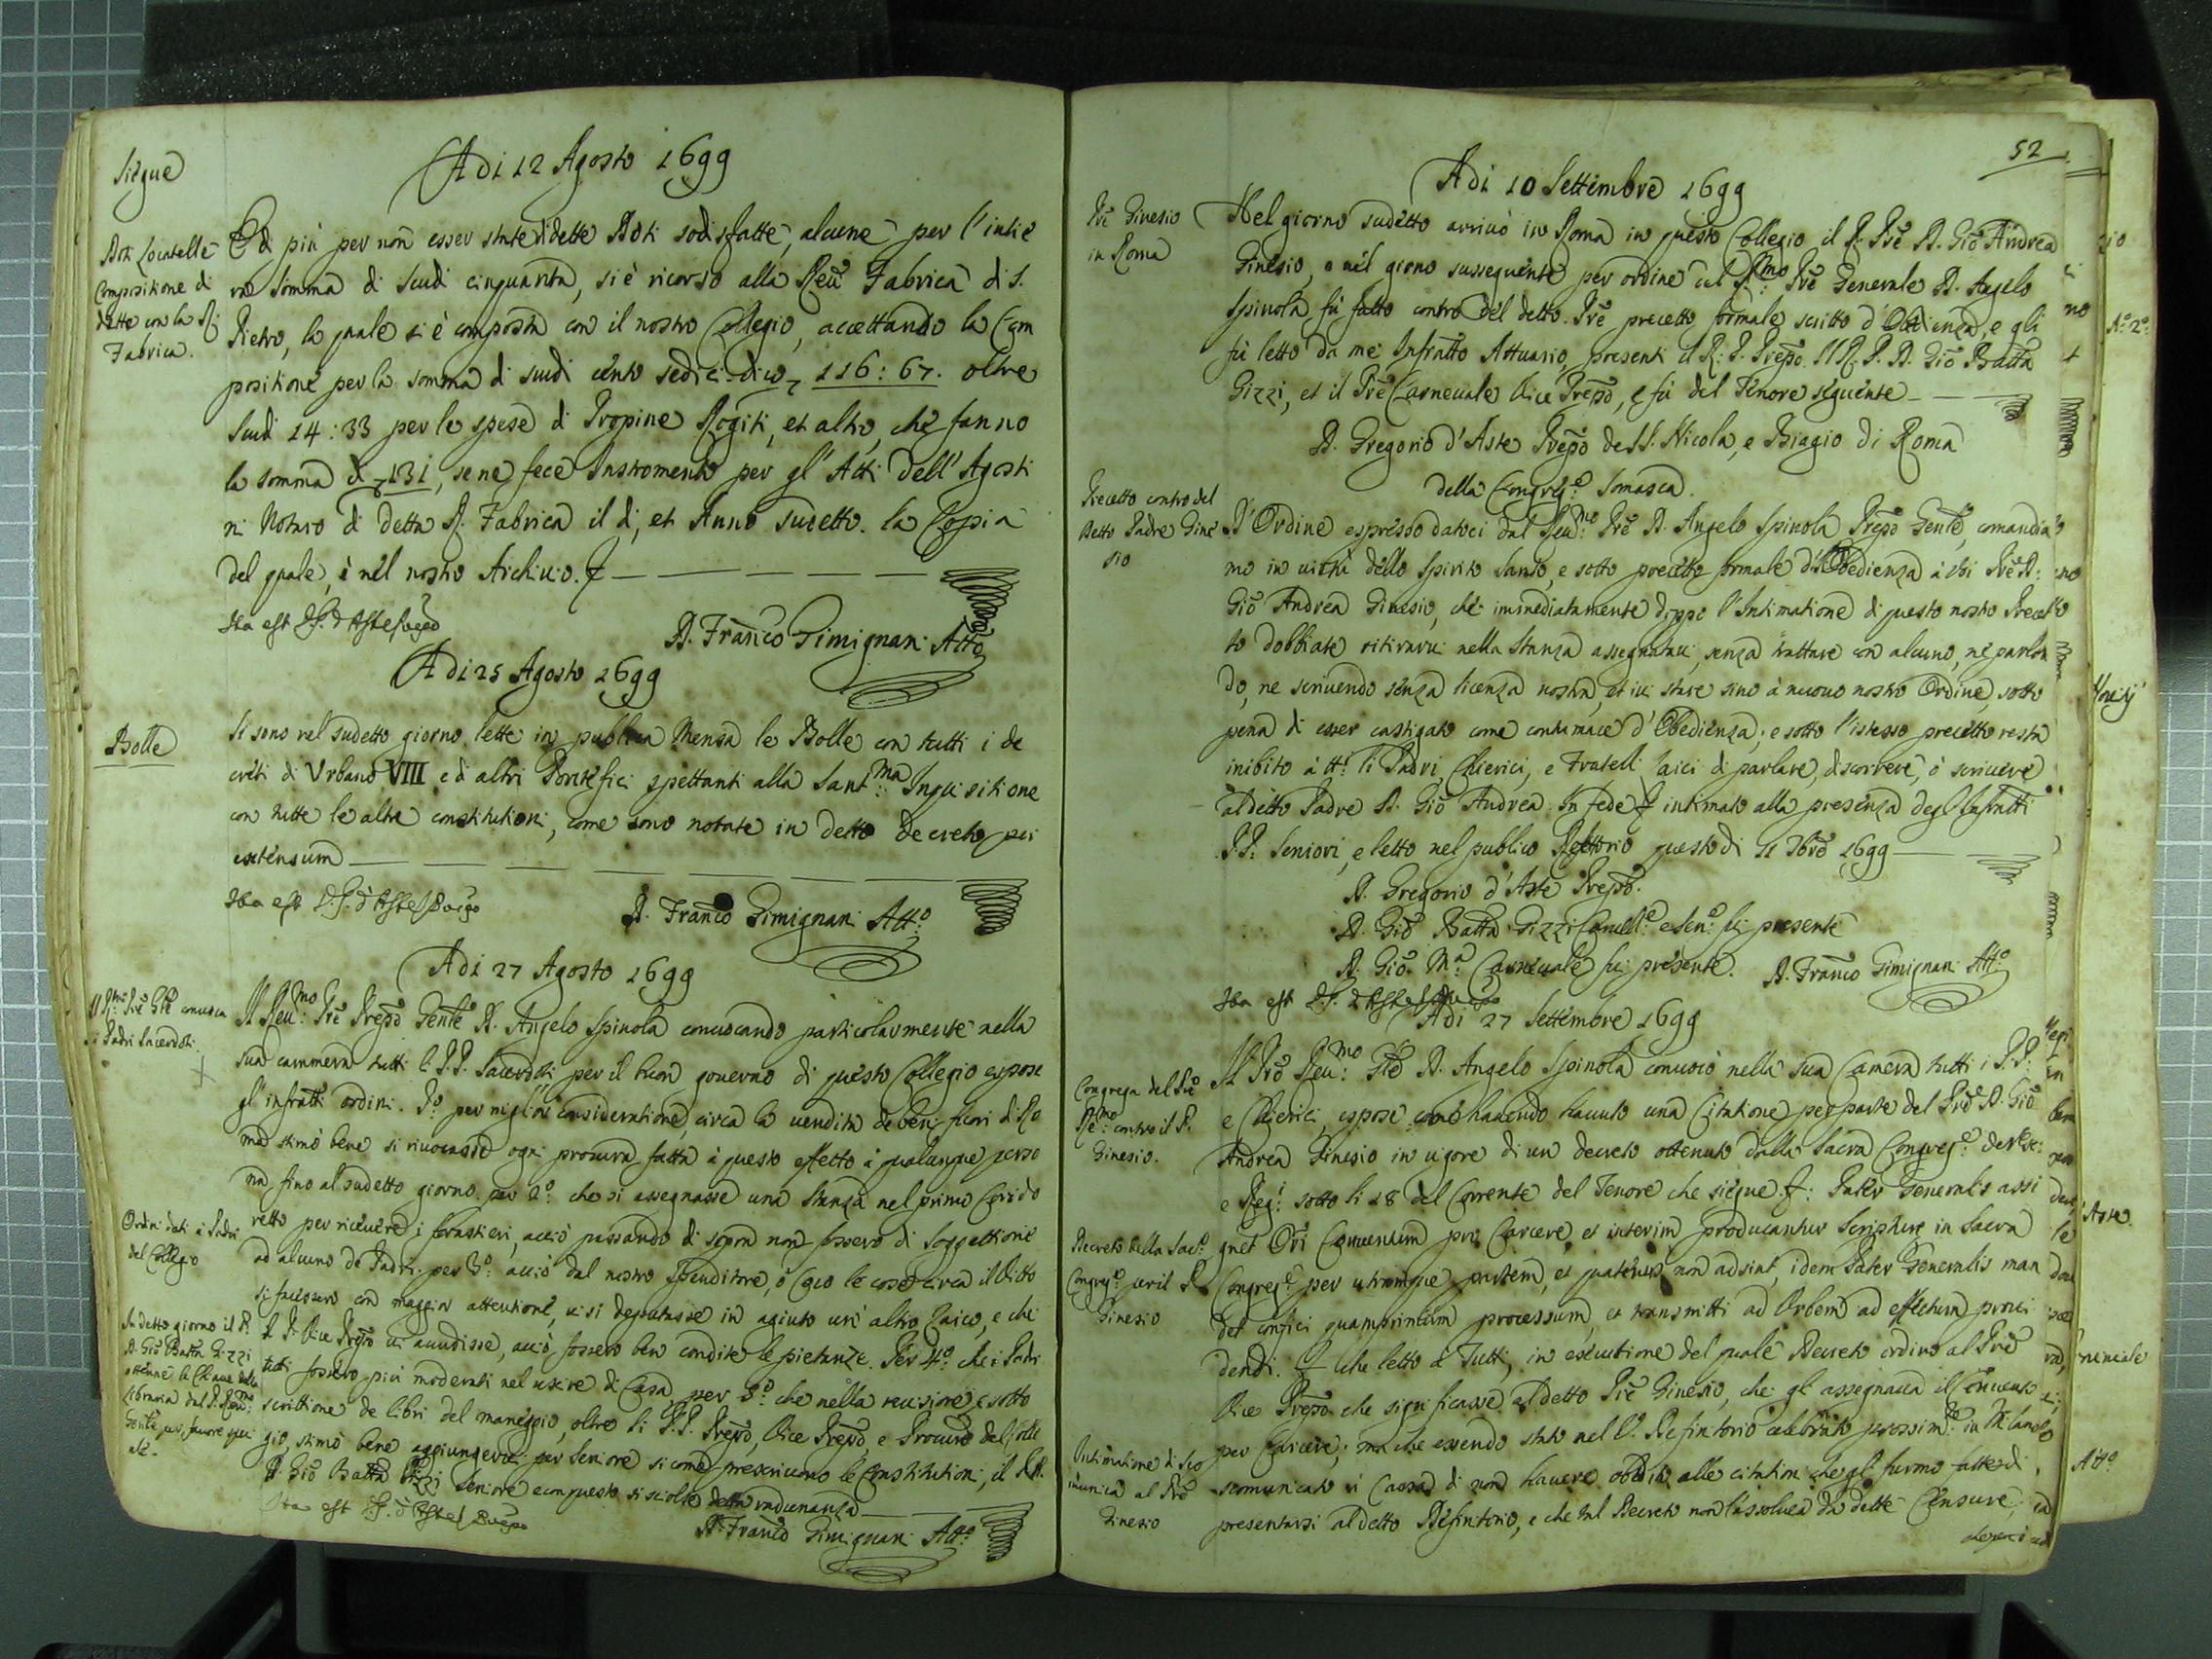 Siegue
Adi 12 Agosto 1699
Doti Locatelle
Compositione di
dette con la R.
Fabrica.
E di più per non esser state dette Doti sodisfatte, alcune per l'intie
ra somma di scudi cinquanta, si è ricorso alla Reu. Fabrica di S.
Pietro, la quale si è composta con il nostro Collegio, accettando la Com
positione per la somma di scudi cento sedici dico 116: 67. oltre
scudi 14: 33 per le spese di Propine Rogiti, et altro, che fanno
la somma di 131, se ne fece Instromento per gl'Atti dell'Agosti
ni Notaro di detta R. Fabrica il dì, et Anno sudetto. la Copia
del quale, è nel nostro Archiuio.
Ita est D. G. d'Aste Prepo
D. Franco Gimignani Atto
Adi 25 Agosto 1699
Bolle
Si sono nel sudetto giorno lette in publica Mensa le Bolle con tutti i de
creti di Urbano VIII e di altri Pontefici spettanti alla Santma Inquisitione
con tutte le altre constitutioni, come sono notate in detto decreto per
extensum
Ita est D. G. d'Aste Prepo
D. Franco Gimignani Atto
Adi 27 Agosto 1699
Il Rmo Pre Gle conuoca
li Padri Sacerdoti
Il Reumo Pre Prepo Genle D. Angelo Spinola conuocando particolarmente nella
sua cammera tutti li P.P. Sacerdoti per il buon gouerno di questo Collegio espose
gl'infratti ordini. Po per miglior consideratione, circa la uendita de beni fuori di Ro
ma stimò bene si riuocasse ogni procura fatta à questo effetto à qualunque perso
na fino al sudetto giorno. per 2o che si assegnasse una stanza nel primo Corido
retto per riceuere i forastieri, acciò passando di sopra non fossero di soggettione
Ordini dati a Padri
del Collegio
ad alcuno de Padri. per 3o acciò dal nostro spenditore, ò Cuoco le cose circa il Vitto
si facessero con maggior attentione, ui si deputasse in agiuto un'altro laico, e che
In detto giorno il P.
D. Gio Batta Gizzi
ottenne la Chiaue della
Libraria dal P. Reumo
Genle per fauore speci
ale.
il P. Vice Prepo ui accudisse, acciò fossero ben condite le pietanze. Per 4o che i Padri
tutti fossero più moderati nel uscire di Casa, per 5o che nella reuisione, e sotto
scrittione de libri del maneggio, oltre li P.P. Prepo, Vice Prepo, e Procure del Colle
gio, stimò bene aggiungerui per Seniore si come prescriuono le Constitutioni, il P.
D. Gio Batta Gizzi seniore e con questo si sciolse detta radunanza
Ita est D. G. d'Aste Prepo
D. Franco Gimignani Atto
52
Adi 10 Settembre 1699
Pre Ginesio
in Roma
Nel giorno sudetto arriuò in Roma in questo Collegio il P. Pre D. Gio Andrea
Ginesio, e nel giorno susseguente per ordine del Rmo Pre Generale D. Angelo
Spinola fù fatto contro del detto Pre precetto formale scritto d'Obedienza, e gli
fù letto da me Infratto Attuario, presenti il R. P. Prepo Il R. P. D. Gio Batta
Gizzi, et il Pre Carneuale Vice Prepo, e fù del Tenore seguente
D. Gregorio d'Aste Prepo de SS. Nicola, e Biagio di Roma
della Congrege Somasca.
Precetto contro del
detto Padre Gine
sio
D'Ordine espresso datoci dal Reumo Pre D. Angelo Spinola Prepo Genle, comandia
mo in uirtù dello Spirito Santo, e sotto precetto formale d'Obedienza à Voi Pre D.
Gio Andrea Ginesio, che immediatamente doppo l'Intimatione di questo nostro Precet
to dobbiate ritirarui nella stanza assegnataui, senza trattare con alcuno, ne parlan
do, ne scriuendo senza licenza nostra, et iui stare sino à nuouo nostro Ordine, sotto
pena di esser castigato come contumace d'Obedienza; e sotto l'istesso precetto resta
inibito à tti li Padri, Chierici, e Fratelli laici di parlare, discorrere, ò scriuere
al detto Padre D. Gio Andrea. In fede intimato alla presenza degl'Infratti
P.P. Seniori, e letto nel publico Refettorio questo dì 11 7bre 1699
D. Gregorio d'Aste Prepo.
D. Gio Batta Gizzi e Sen. fui presente
D. Gio. Ma Carneuale fui presente. D. Franco Gimignani Atto
Ita est D. G. d'Aste Prepo
Adi 27 Settembre 1699
Congrega del Pre
Rmo contro il P.
Ginesio.
Il Pre Reumo Gle D. Angelo Spinola conuocò nella sua Camera tutti i P.P.
e Chierici, espose come hauendo hauuto una Citatione per parte del Pre D. Gio
Andrea Ginesio in uigore di un decreto ottenuto dalla Sacra Congrege de Vesc:
e Reg: sotto li 18 del Corrente del Tenore che siegue: Pater Generalis assi
Decreto della Sac.
Congrege per il P.
Ginesio
gnet Ori Conuentum pro Carcere et interim producantur Scripture in Sacra
Congrege per utramque partem, et quatenus non adsint, idem Pater Generalis man
det confici quamprimum processum, et transmitti ad Urbem ad effectum proui
dendi. che letto à Tutti, in esecutione del quale Decreto ordinò al Pre
Vice Prepo che significasse al detto Pre Ginesio, che gli assegnaua il Conuento
Intimatione di sco
munica al Pre
Ginesio
per Carcere; ma che essendo stato nel Definitorio celebrato in Milano
scomunicato à Causa di non hauere obedito alle citationi che gli furono fatte di
presentarsi al detto Definitorio, e che tal Decreto non l'assolueua da dette Censure,